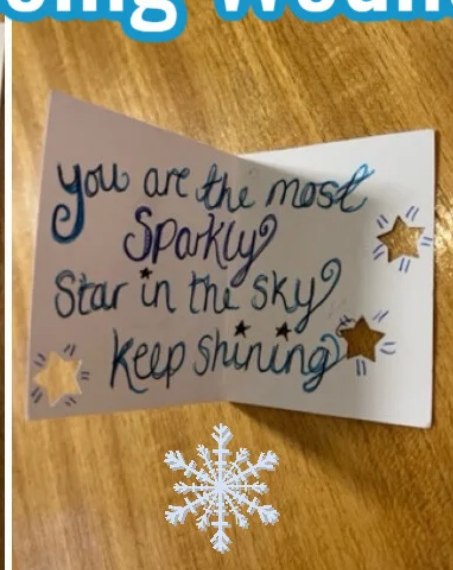 you are the most
Sparkly
Star in the sky
keep shining